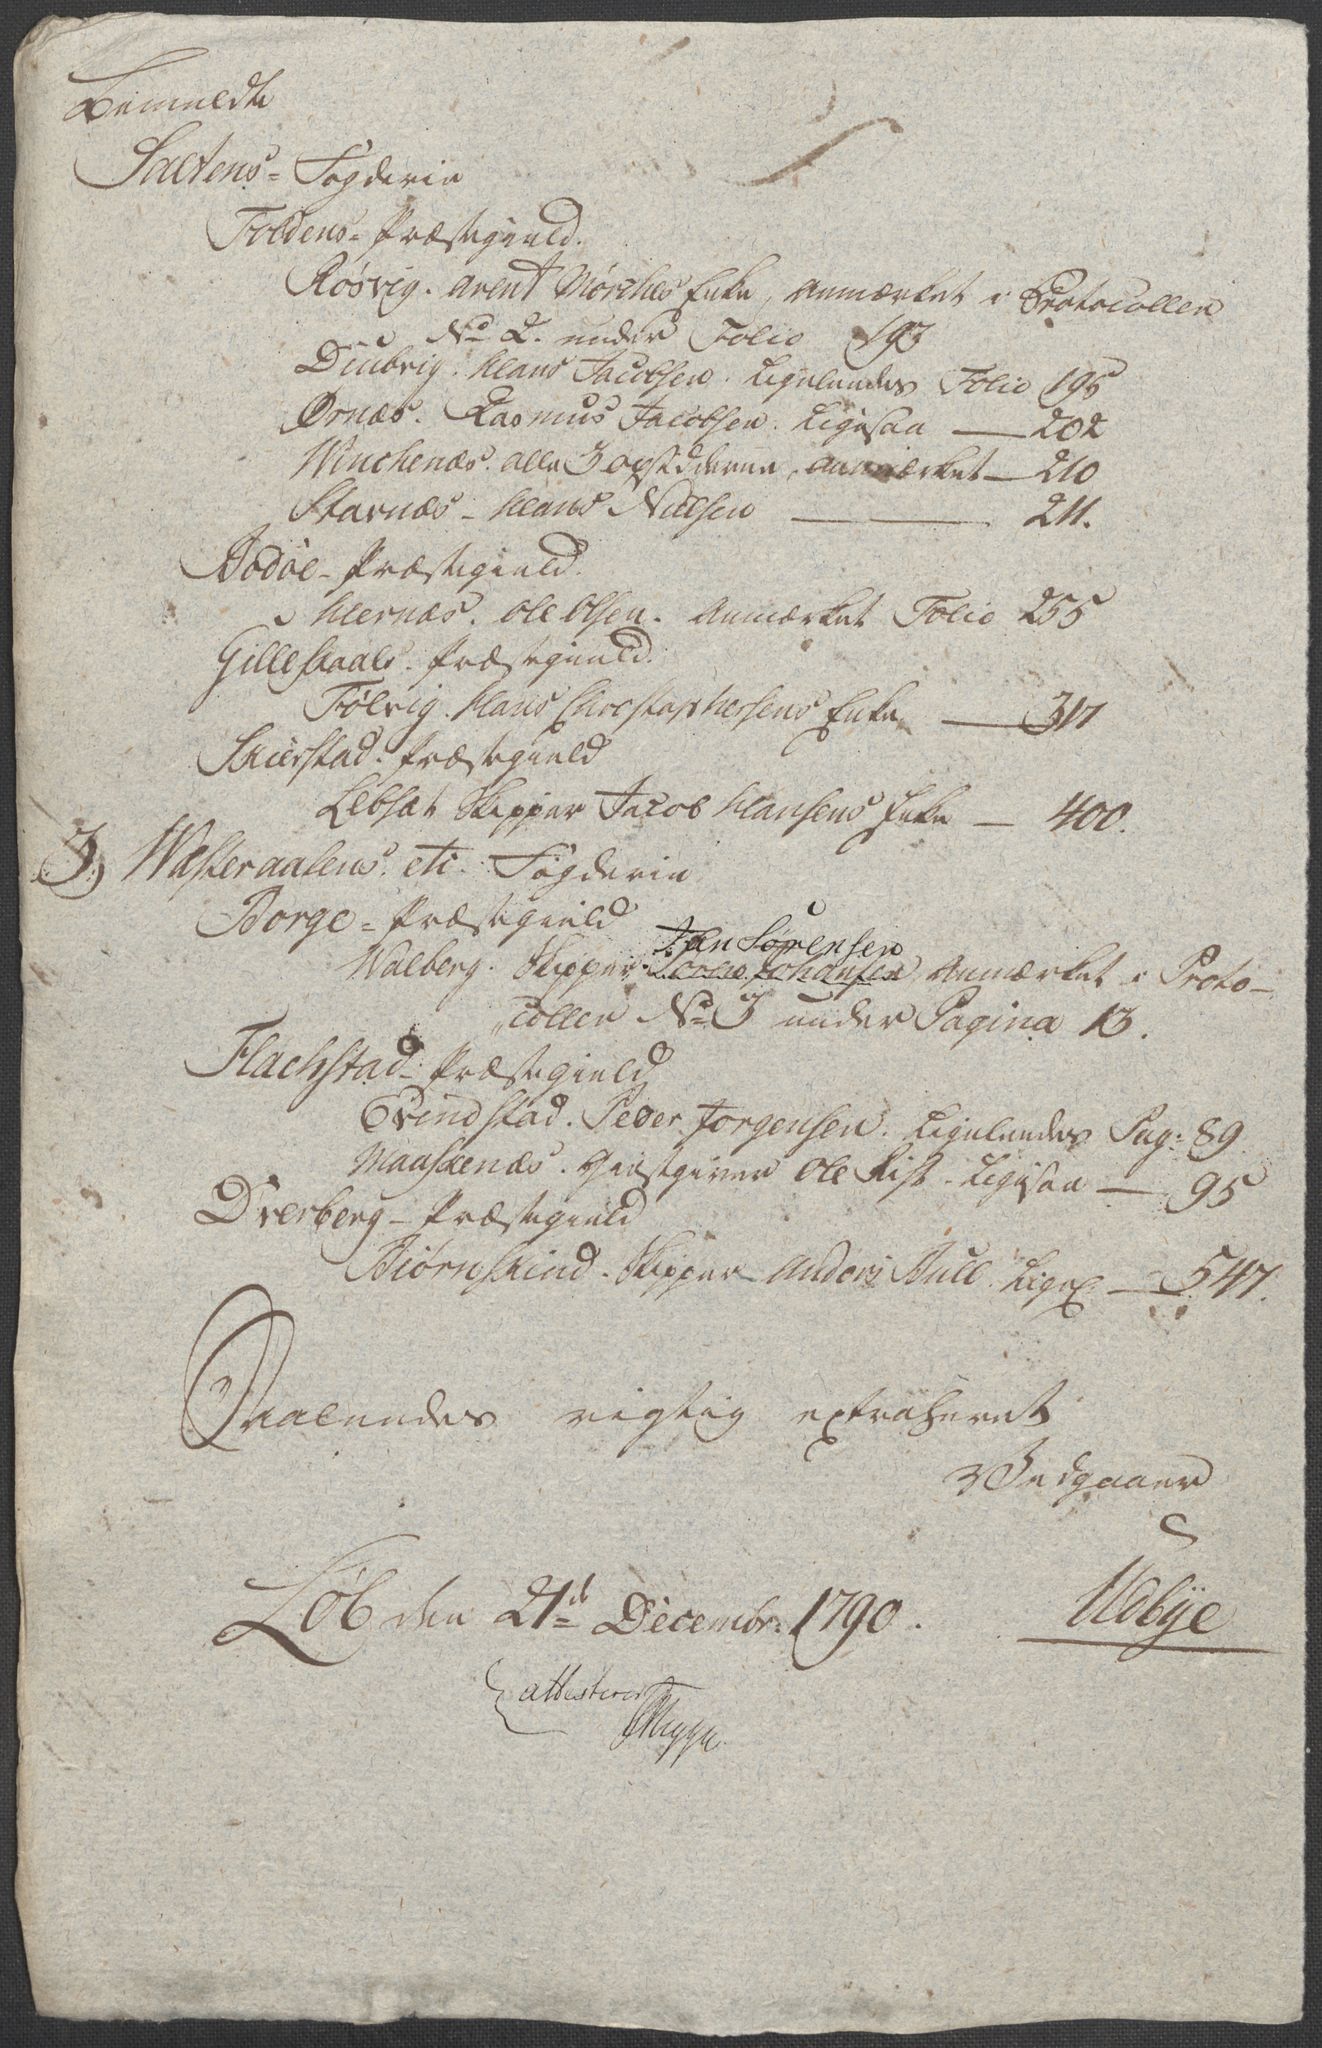 Bemeldte
Saltens- Fogderie
Foldens- Præstegield.
Røsvig. Arent Mørches Enke, Anmærket i Protocollen
No 2. under Folio 193
Diubvig. Hans Jacobsen. Ligeledes Folio 195
Ørnæs. Rasmus Jacobsen. Ligesaa — 202
Winchenæs. alle 3 opsidderne, anmærket — 210
Starnæs - Hans Nielsen — 211.
Bodøe- Præstegield.
Hernæs. Ole Olsen. Anmærket Folio 255
Gilleskaals. Præstegield.
Følvig. Hans Christophersens Enke — 317
Skierstad. Præstegield
Lebsæt Skipper Jacob Hansens Enke — 400.
3) Westeraalens. etc. Fogderie
Borge- Præstegield
Jen Sørensen
Walberg. Skipper Johansen, Anmærket i Proto-
collen No 3 under Pagina 13.
Flachstad- Præstegield
Evindstad. Peder Jørgensen. Ligeledes Pag: 89
Maaskenæs. Giestgiver Ole Rist. Ligesaa — 95
Dverberg- Præstegield
Biørnskind. Skipper Anders Bull. Ligel — 547.
Saaledes rigtig extraheret
Vedgaaer
Løb den 21d Decembr: 1790. Uldbye
attesterer